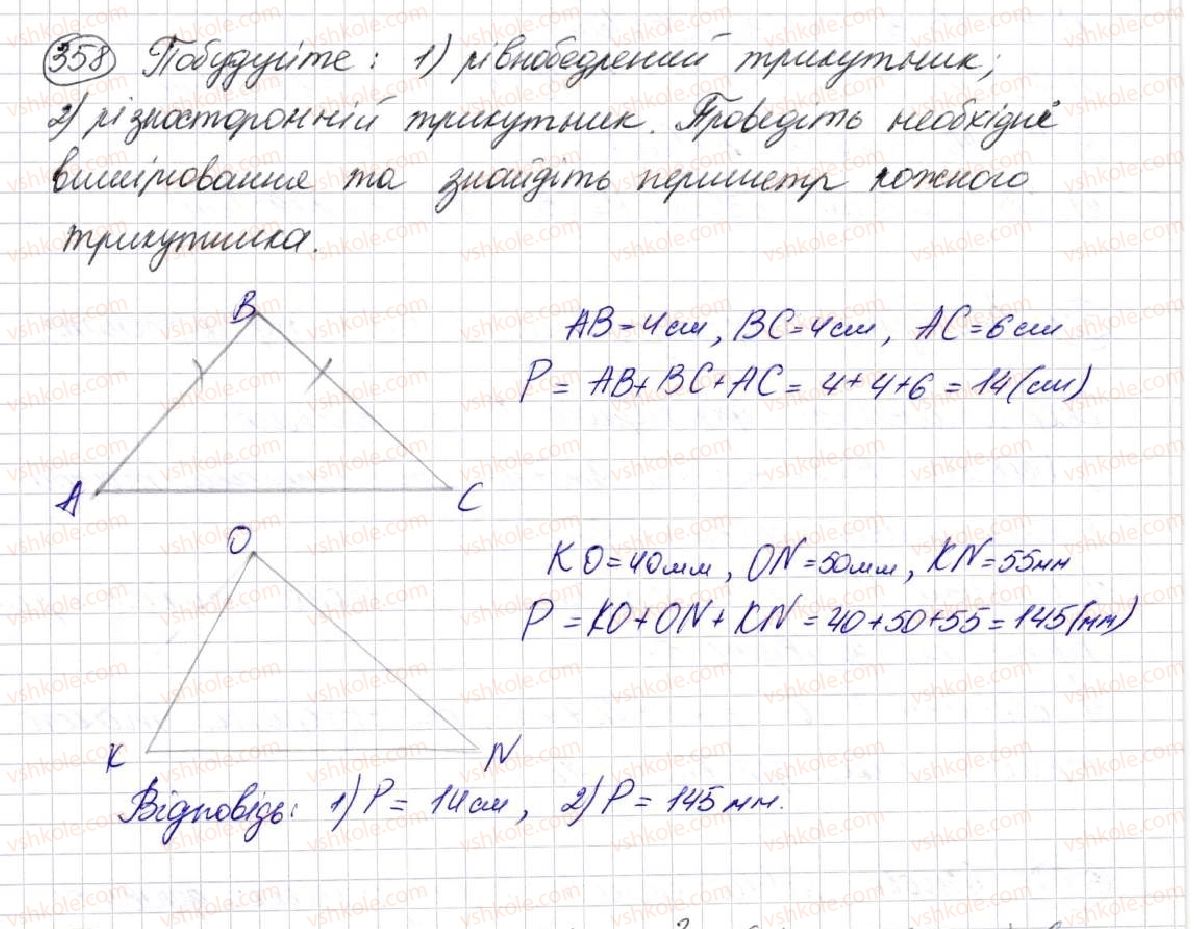 358 Побудуйте: 1) рівнобедрений трикутник;
2) різносторонній трикутник. Проведіть необхідні
вимірювання та знайдіть периметр кожного
трикутника.
B
AB=4см, BC=4см, AC=6см
P = AB+BC+AC= 4+4+6 = 14(см)
A
C
O
KO=40мм, ON=50мм, KN=55мм
P = KO+ON+KN=40+50+55=145(мм)
K
N
Відповідь: 1) P= 14см, 2) P= 145мм.
vshkole.com